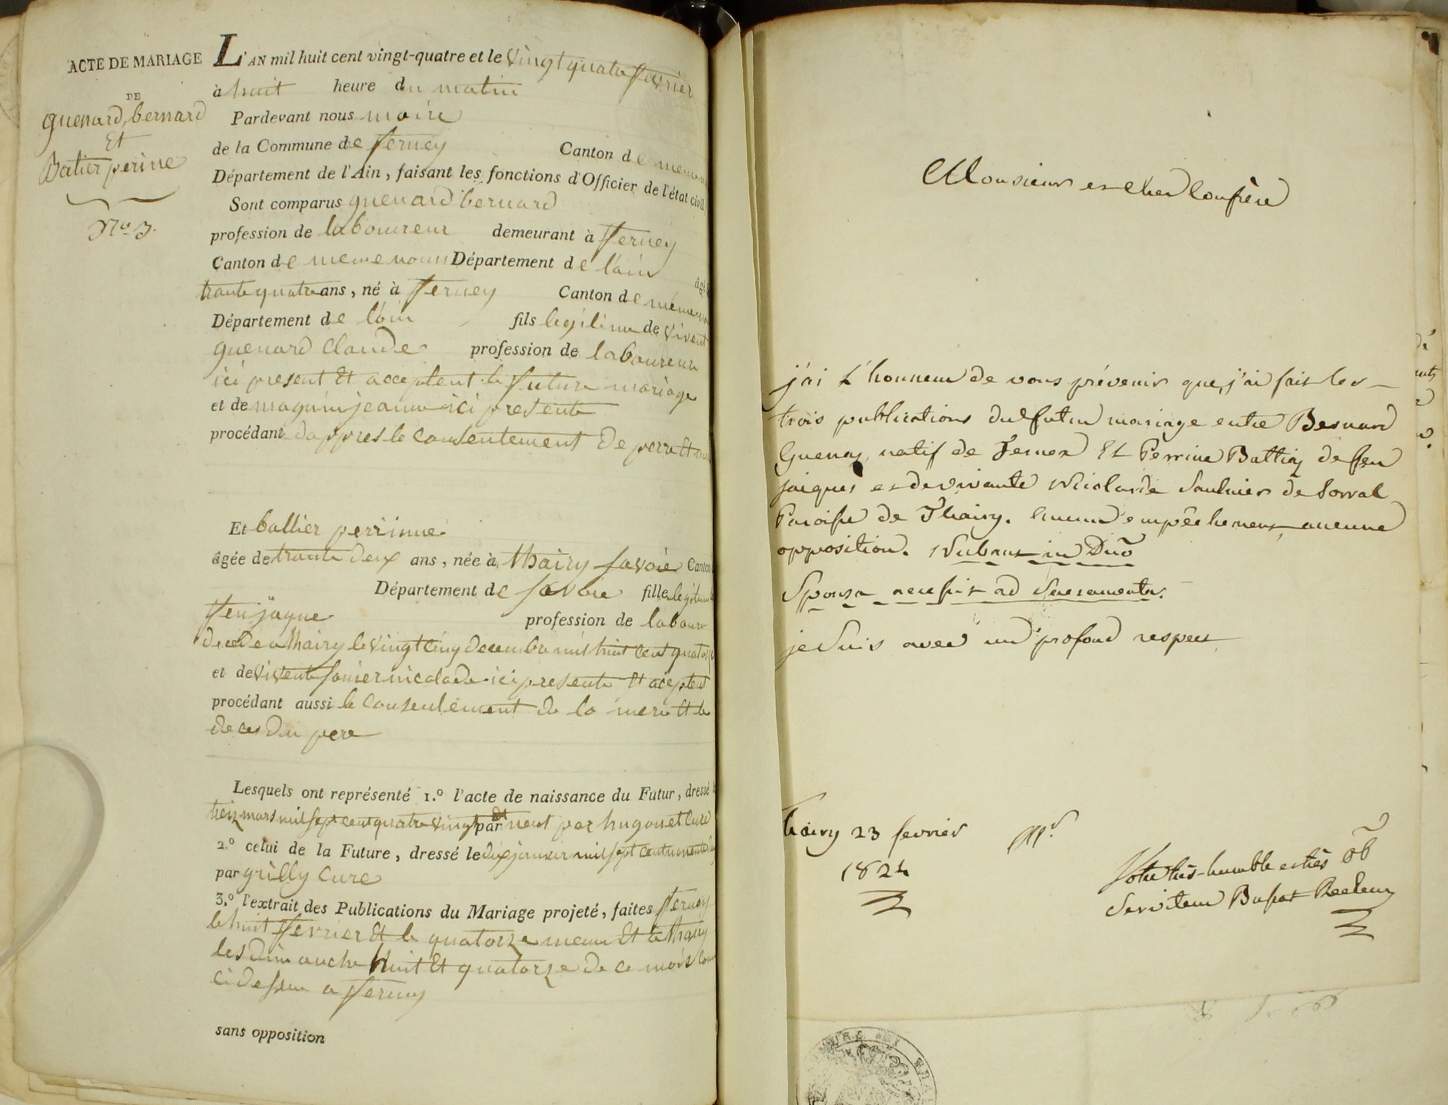 ACTE DE MARIAGE
DE
guenard bernard
Et
Batier perine
No 3.
L'AN mil huit cent vingt-quatre et le vingt quatre fevrier
à huit heure du matin
Pardevant nous maire
de la Commune de ferney Canton de meme
Département de l'Ain, faisant les fonctions d'Officier de l'état civil
Sont comparus guenard bernard
profession de laboureur demeurant à ferney
Canton de meme nom Département de l'ain
trante quatre ans, né à ferney Canton de meme
Département de l'ain fils legitime de vivent
guenard claude profession de laboureur
ici present Et acceptent le future mariage
et de magnin jeanne ici presente
procédant dappres le consentement de perre Et
Et ballier perrinne
âgée de trante deux ans, née à thairy savoie Canton
Département de savoie fille legitime
feu jaque profession de labour
decede a thairy le vingt cinq decembre mil huit cent quators
et de vivente sonier nicolade ici presente Et aceptent
procédant aussi le consentement de la mere Et le
deces du pere
Lesquels ont représenté 1.º l'acte de naissance du Futur, dressé
treiz mars mil sept cent quatre vingt dix par neuf par hugonet curé
2.º celui de la Future, dressé le dix janvier mil sept cent
par grilly cure
3.º l'extrait des Publications du Mariage projeté, faites ferney
le huit fevrier Et le quatorze meme Et le thairy
les dimanche huit Et quatorze de ce mois
ci dessu a ferney
sans opposition
Monsieur et cher Confrère
j'ai L'honneur de vous prévenir que j'ai fait les
trois publications du futur mariage entre Bernard
Guenay natif de Fernex Et Perrine Battiaz de feu
jacques et de vivante Nicolarde Saulnier de Sorral
Paroisse de Thairy. Aucun empêchement, aucune
opposition. Nubant in Dño
Sponsa accessit ad Sacramenta.
je suis avec un profond respect
Thairy 23 fevrier
1824
Mr
Votre très-humble et très ob
Serviteur Recteur